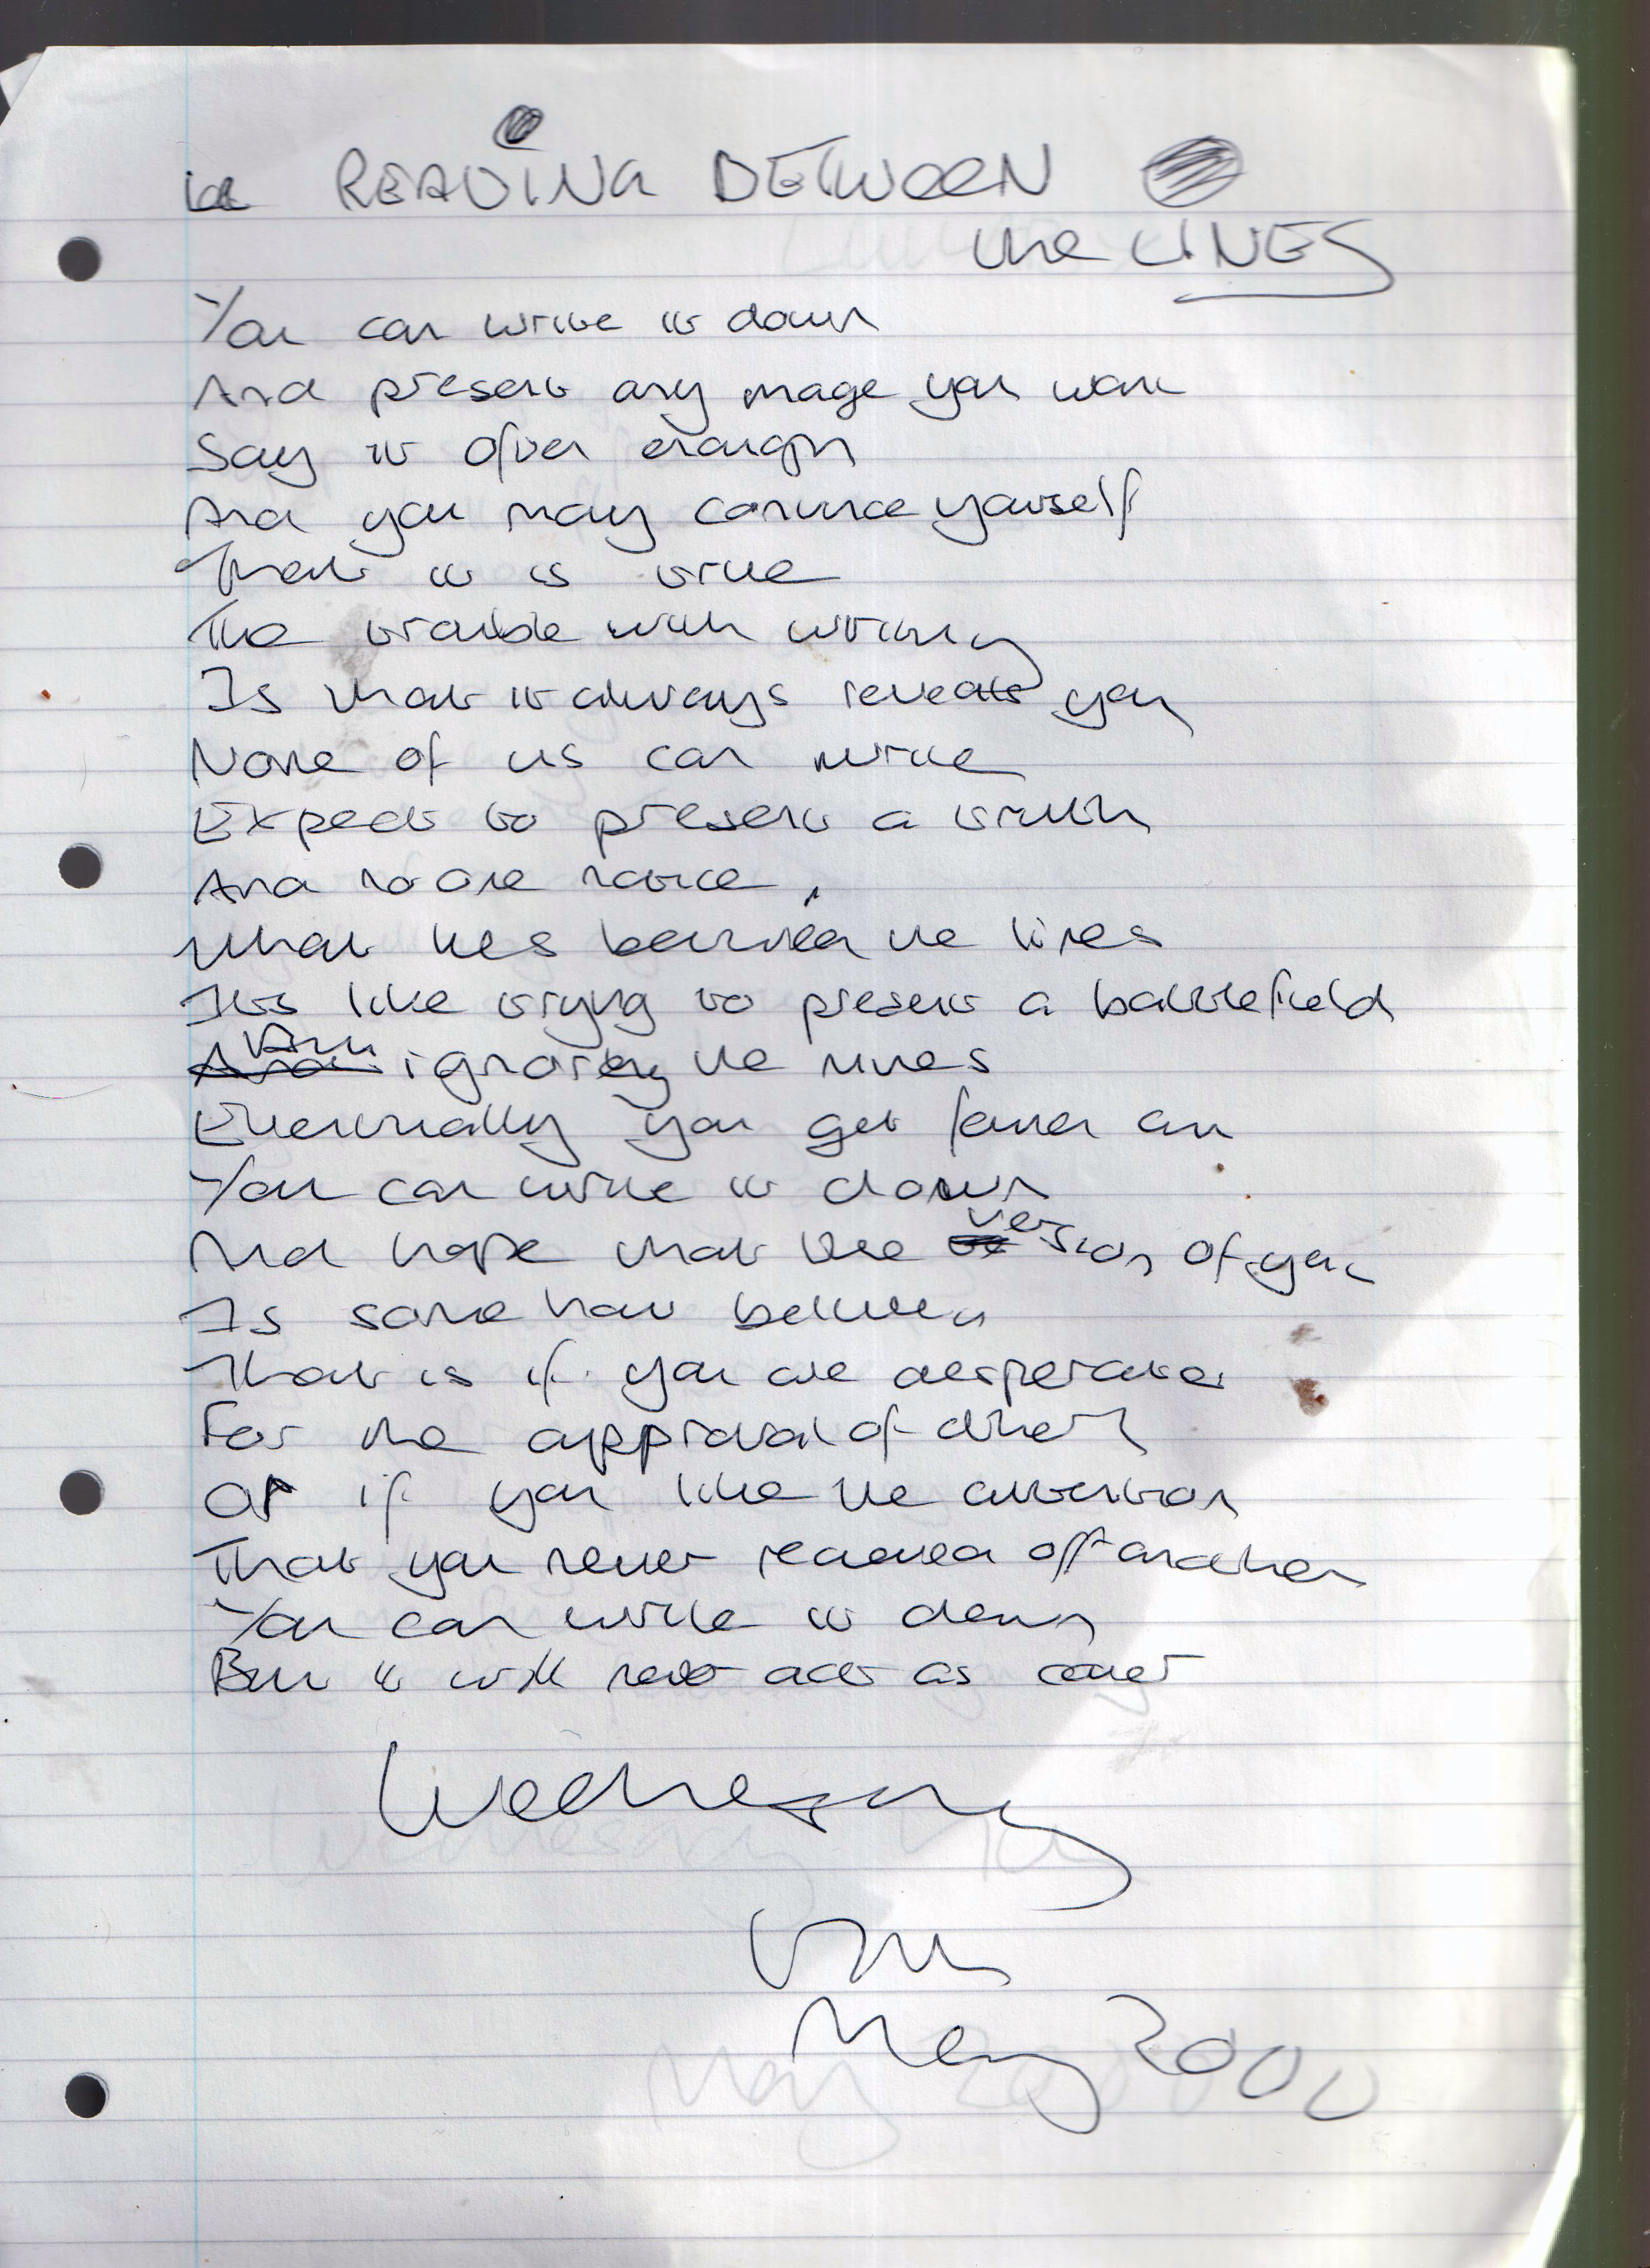 READING BETWEEN
the LINES
You can write it down
And present any image you want
Say it often enough
And you may convince yourself
That it is true
The trouble with writing
Is that it always reveals you
None of us can write
Expect to present a truth
And no one notice,
What lies between the lines
Its like trying to present a battlefield
ignoring the mines
Eventually you get found out
You can write it down
And hope that the version of you
Is somehow believed
That is if you are desperate
For the approval of others
Or if you like the attention
That you never received off another
You can write it down
But it will not act as cover
Wednesday
May 2000